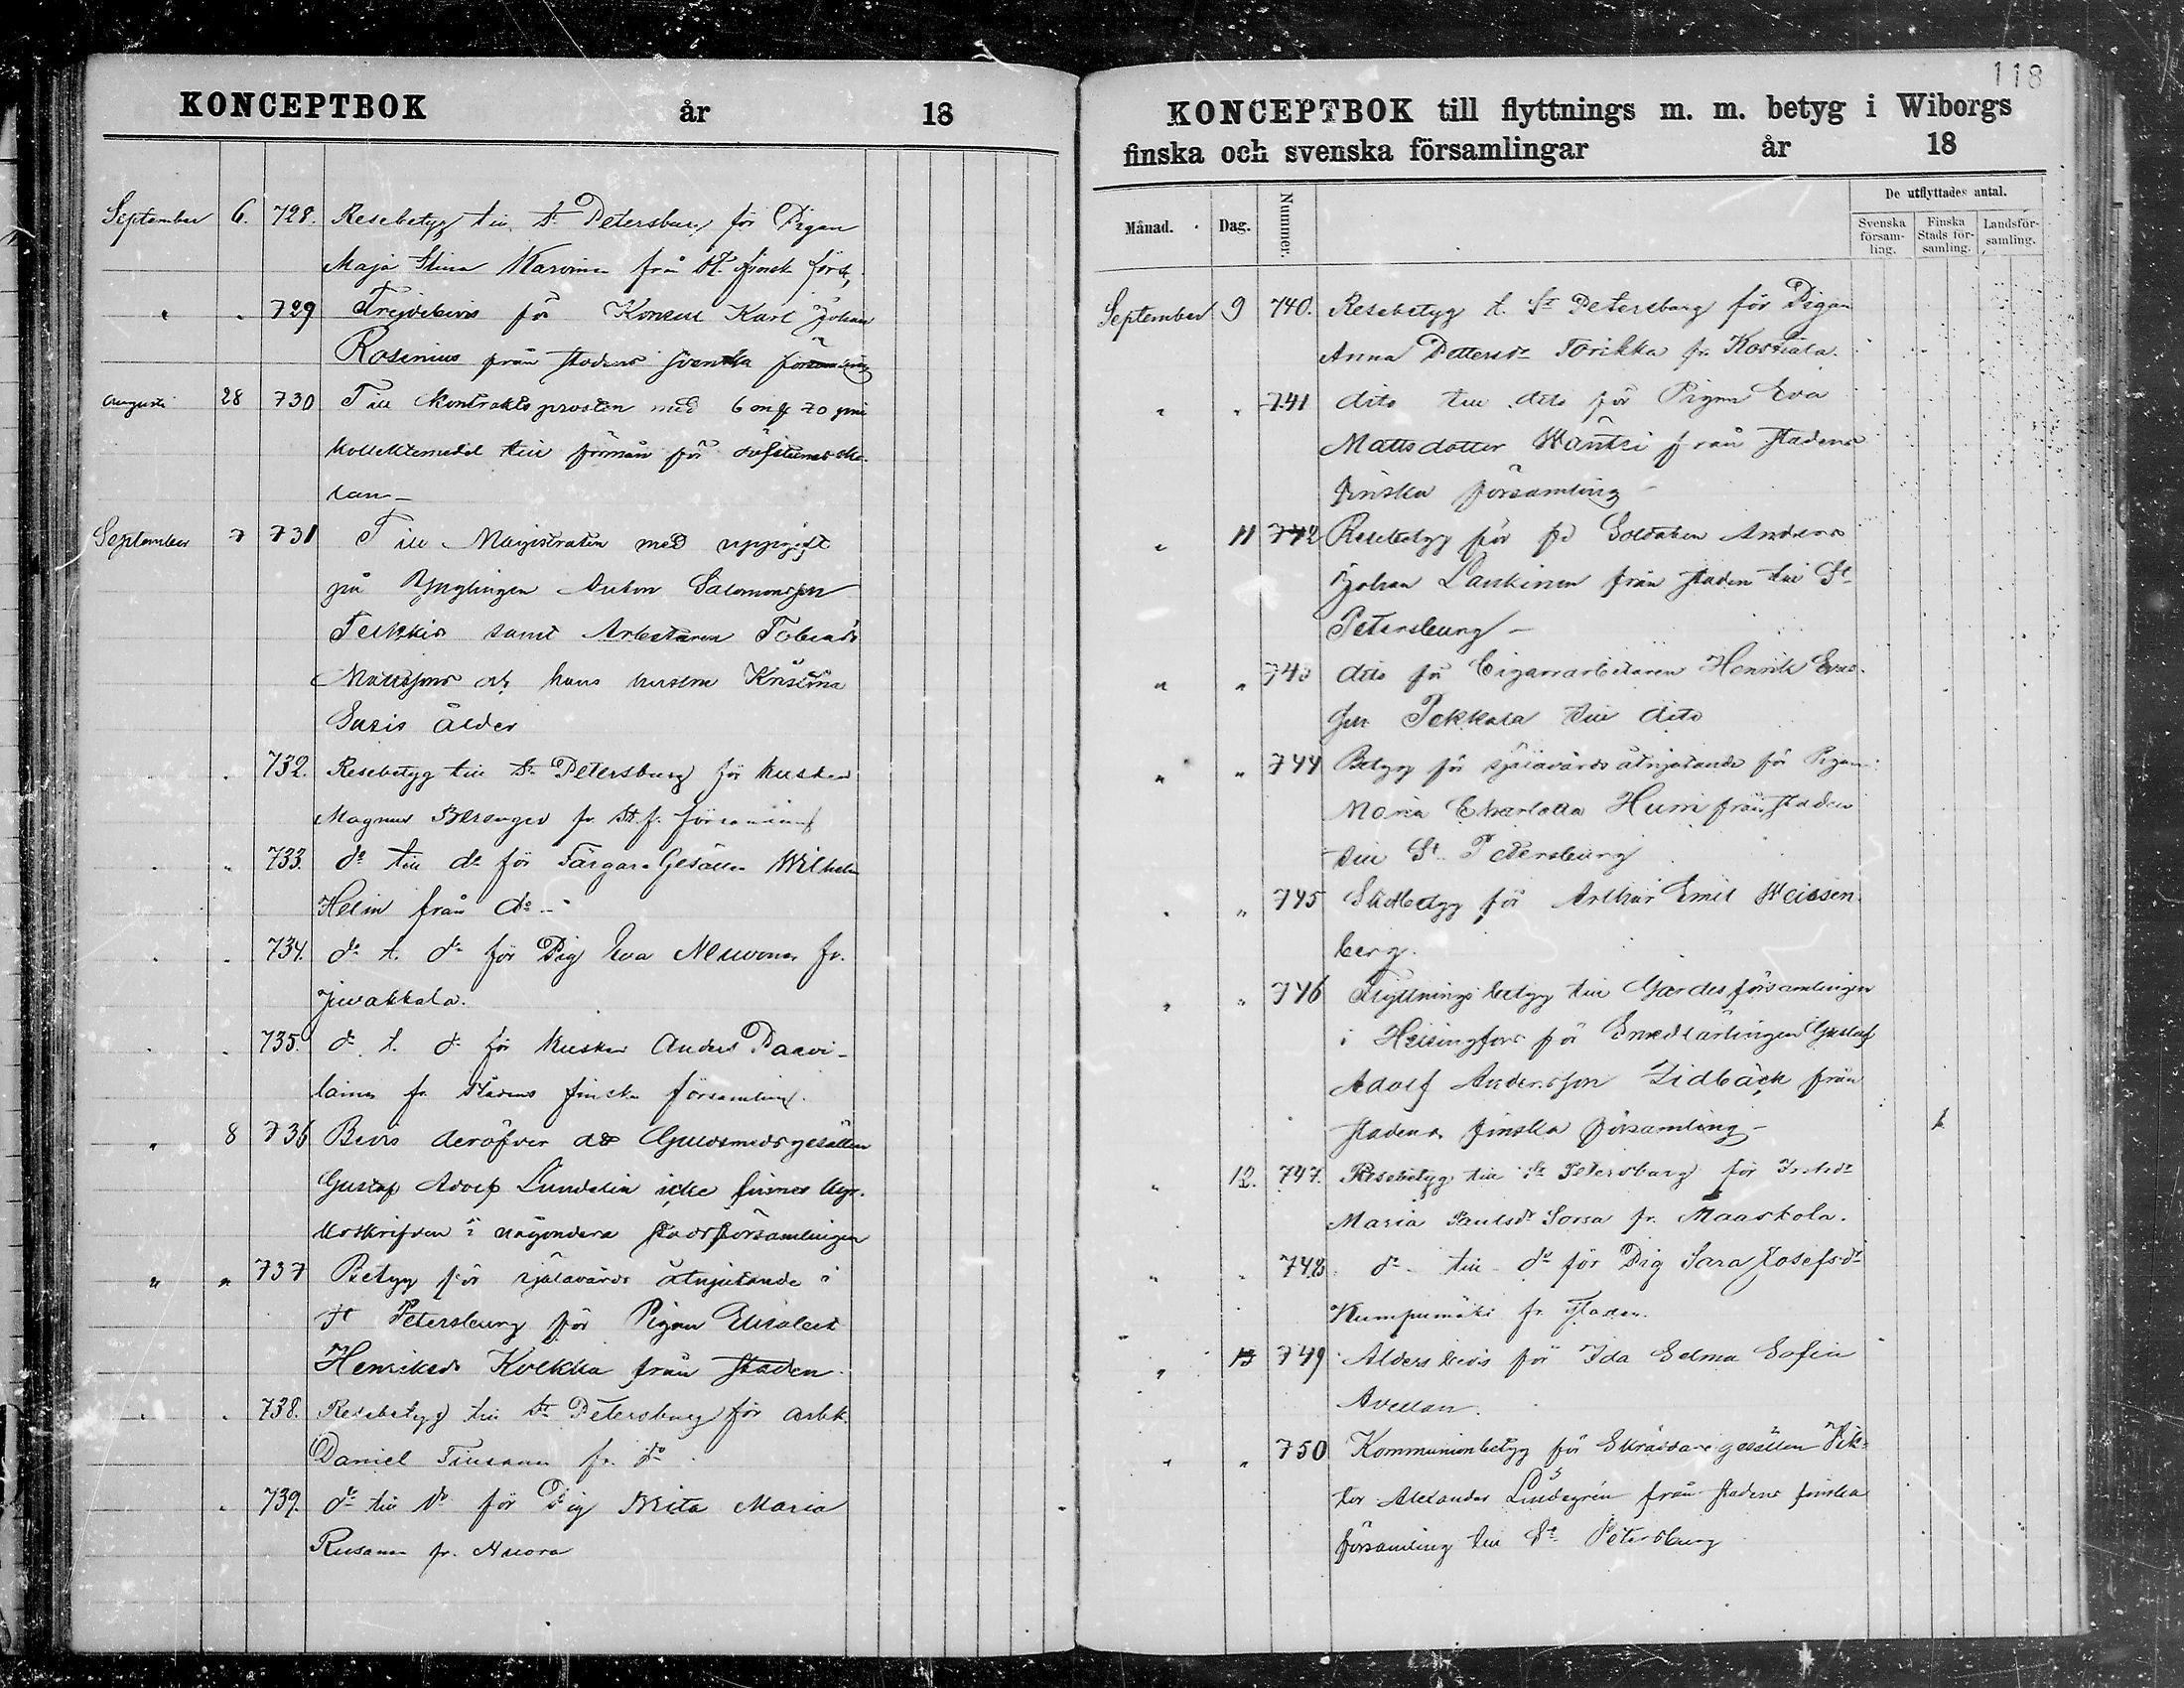 KONCEPTBOK år 18
September 6. 728. Resebetyg till St Petersburg för Pigan
Maja Stina Karvinen från St. finsk förs,
" " 729 Frejdebevis för Konsul Karl Johan
Rosenius från stadens svenska församling
Augusti 28 730 Till Kontraktsprosten med 6 mk 70 pni
kollektemedel till förmån för
September 7 731 Till Magistraten med uppgift
på Ynglingen Anton Salomonsson
samt Arbetaren Tobias
Mattssons och hans hustru Kristina
Susis ålder
" 732. Resebetyg till St Petersburg för kusken
Magnus fr. St. f. församling
" " 733. do till do för Färgare Gesällen Wilhelm
Helin från do
" " 734. do t. do för Pig Eva Neuvonen fr.
Juvakkala.
" " 735. do t. do för kusken Anders Paavi-
lainen fr. stadens finska församling.
" 8 736 Bevis deröfver att Guldsmedsgesällen
Gustaf Adolf Lundelin icke finnes kyr-
koskrifven i någondera stadsförsamlingen
" " 737 Betyg för själavårds åtnjutande i
St Petersburg för Pigan Elisabet
Henriksdr Kuokka från staden
" " 738. Resebetyg till St Petersburg för arbk.
Daniel fr. do
" 739. do till do för Pig Maria
Rusanen fr. Nuora
118
KONCEPTBOK till flyttnings m. m. betyg i Wiborgs
finska och svenska församlingar år 18
Månad. Dag. Nummer. De utflyttades antal.
Svenska församling. Finska Stads församling. Landsförsamling.
September 9 740. Resebetyg t. St Petersburg för Pigan
Anna Pettersdr Torikka fr. Kostiala.
" " 741 dito till dito för Pigan Eva
Mattsdotter Wäntsi från stadens
finska församling
" 11 742 Resebetyg för fd Soldaten Anders
Johan Laukinen från staden till St
Petersburg
" " 743 dito för Cigarrarbetaren Henrik Evas-
son Pekkala till dito
" " 744 Betyg för själavårds åtnjutande för Pigan
Maria Charlotta Hurri från staden
till St. Petersburg
" " 745 för Arthur Emil Weissen-
berg.
" " 746 Flyttningsbetyg till Gardesförsamlingen
i Helsingfors för Smedlärlingen Gustaf
Adolf Andersson Lidbäck från
stadens finska församling 1
" 12. 747. Resebetyg till St Petersburg för
Maria Paulsdr Sorsa fr. Maaskola.
" " 748 do till do för Pig Sara Josefsdr
Kumpumäki fr. staden.
" 13 749 Åldersbevis för Ida Selma Sofia
Avellan.
" " 750 Kommunionbetyg för Skräddaregesällen Vik-
tor Alexander Lindegrén från stadens finska
församling till St Petersburg